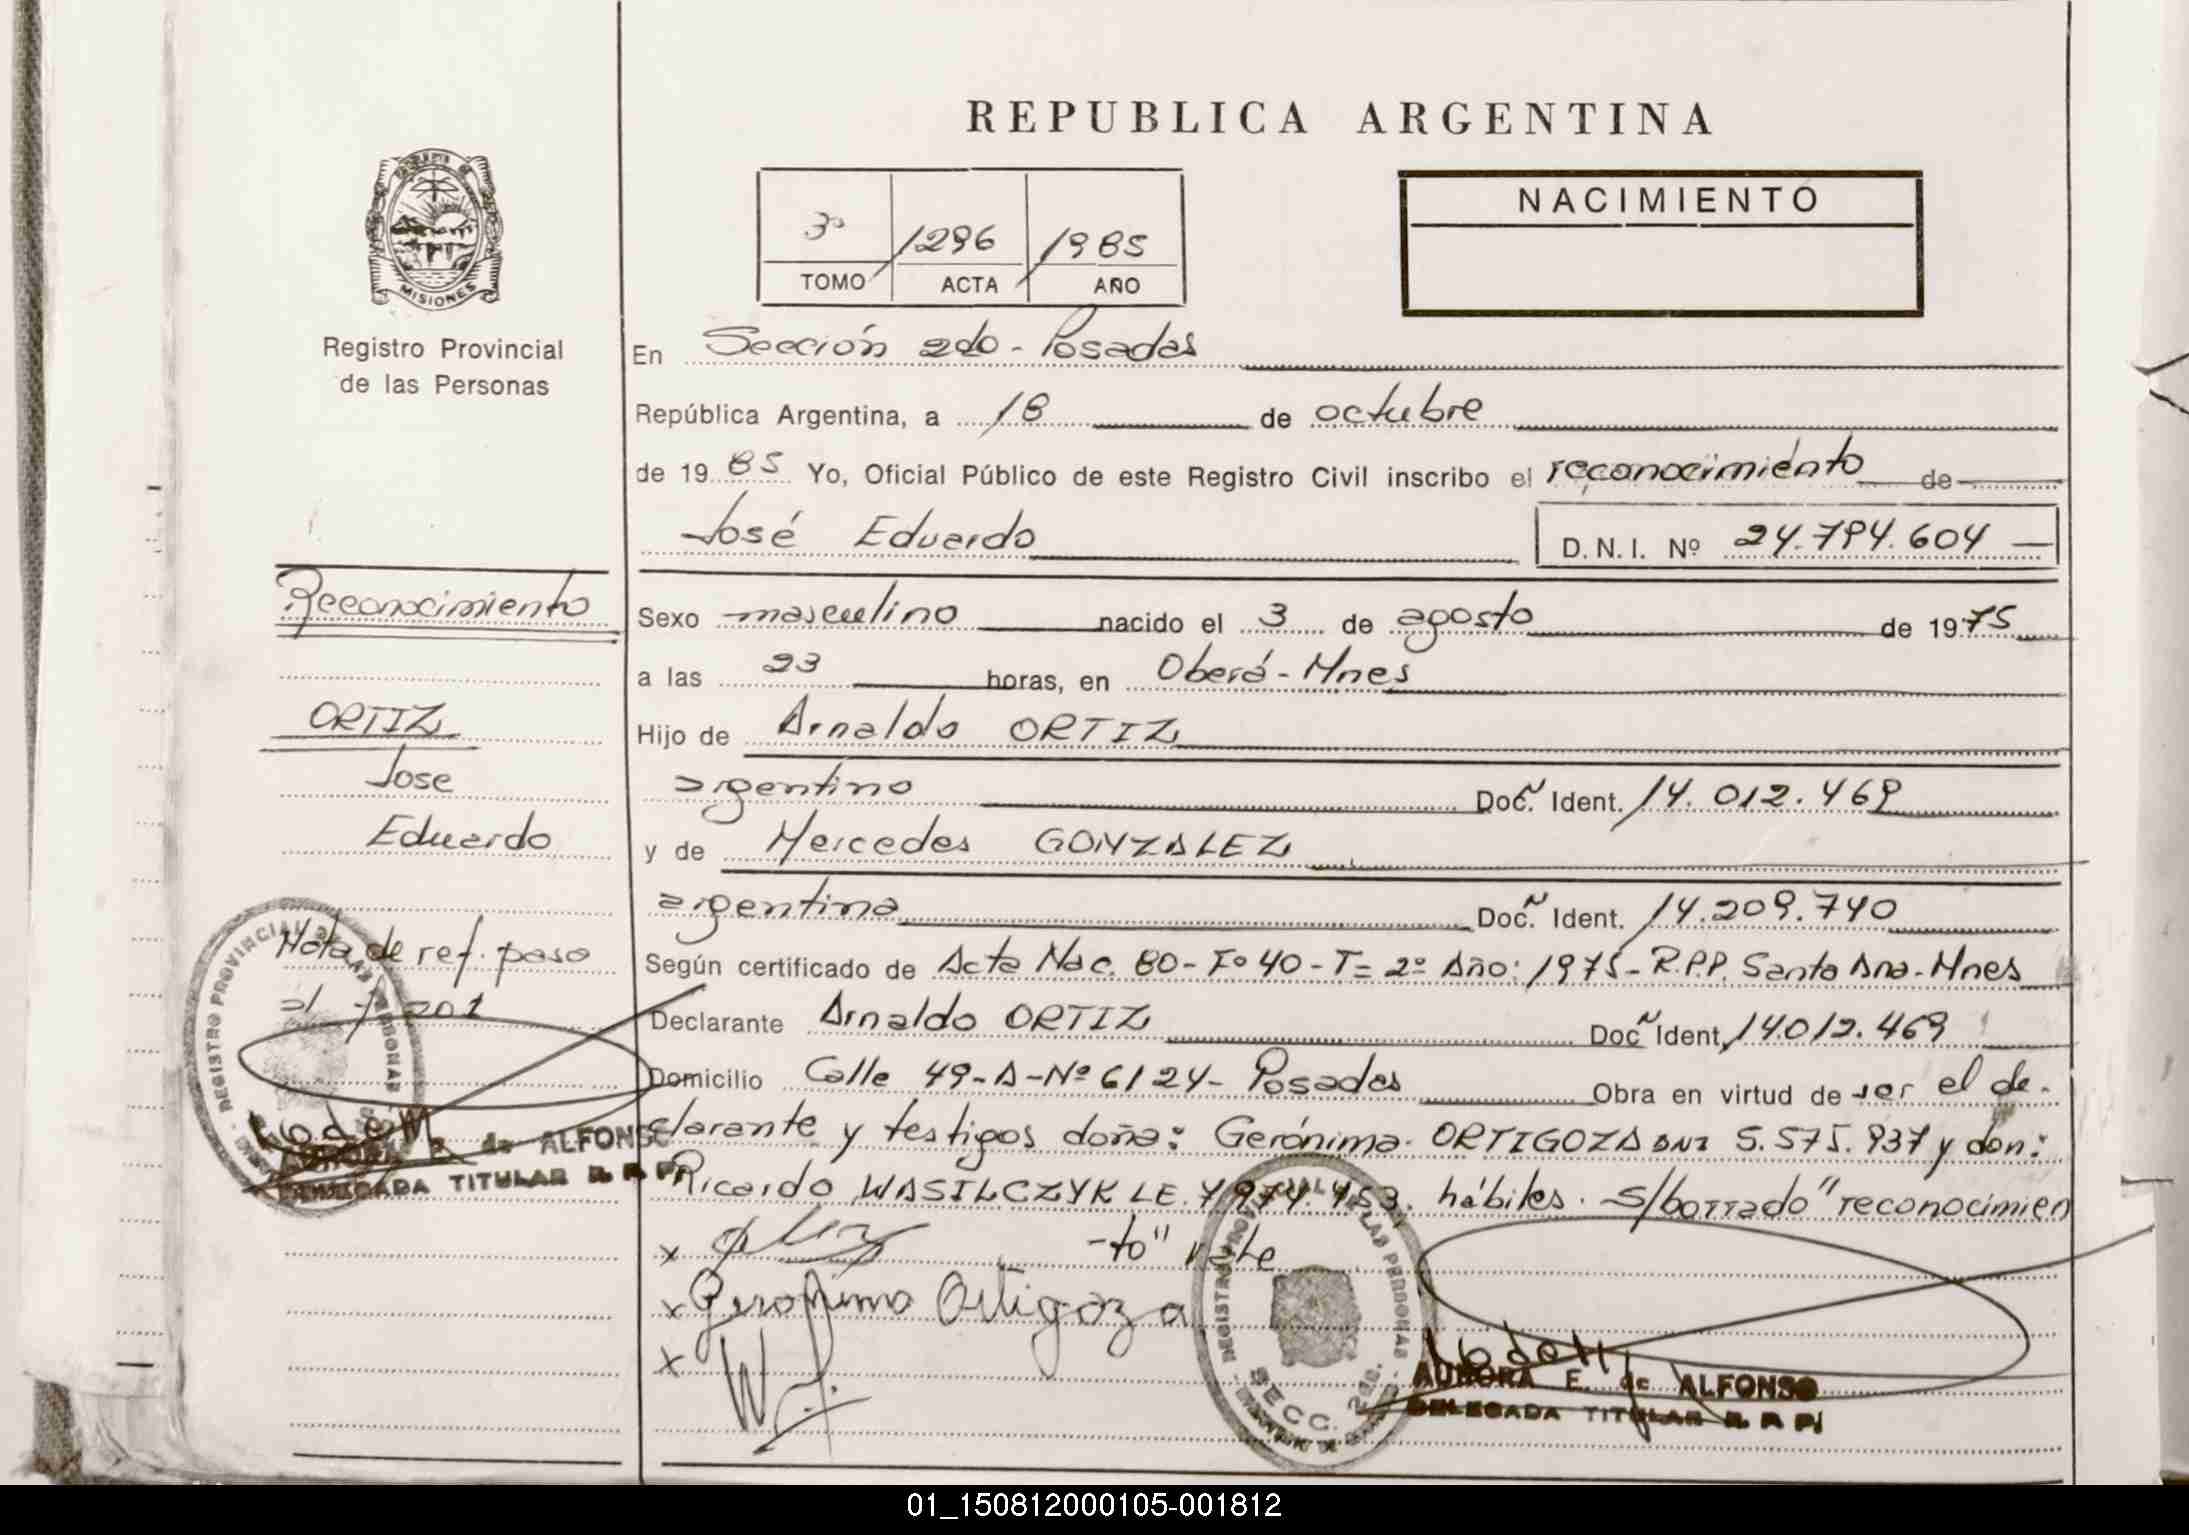 REPUBLICA ARGENTINA
MISIONES
Registro Provincial
de las Personas
3º 1296 1985
TOMO ACTA AÑO
NACIMIENTO
En Sección 2do - Posadas
República Argentina, a 18 de octubre
de 1985 Yo, Oficial Público de este Registro Civil inscribo el reconocimiento de
José Eduardo
D. N. I. Nº 24.794.604
Sexo masculino nacido el 3 de agosto de 1975
a las 23 horas, en Oberá - Mnes
Hijo de Arnaldo ORTIZ
argentino Doc. Ident. 14.012.469
y de Mercedes GONZALEZ
argentina Doc. Ident. 14.209.740
Según certificado de Acta Nac. 80 - Fº 40 - T= 2º Año: 1975 - R.P.P. Santa Ana - Mnes
Declarante Arnaldo ORTIZ Doc. Ident. 14.012.469
Domicilio Calle 49-A-Nº 6124 - Posadas Obra en virtud de ser el de-
clarante y testigos doña: Gerónima ORTIGOZA DNI 5.575.937 y don:
Ricardo WASILCZYK LE 7.974.753. hábiles. S/borrado "reconocimien
-to" vale
x
x Geronima Ortigoza
x
REGISTRO PROVINCIAL DE LAS PERSONAS
SECC. 2da.
AURORA E. de ALFONSO
DELEGADA TITULAR R. P. P.
Reconocimiento
ORTIZ
Jose
Eduardo
Nota de ref. paso
al 201
REGISTRO PROVINCIAL DE LAS PERSONAS
AURORA E. de ALFONSO
DELEGADA TITULAR R. P. P.
01_150812000105-001812